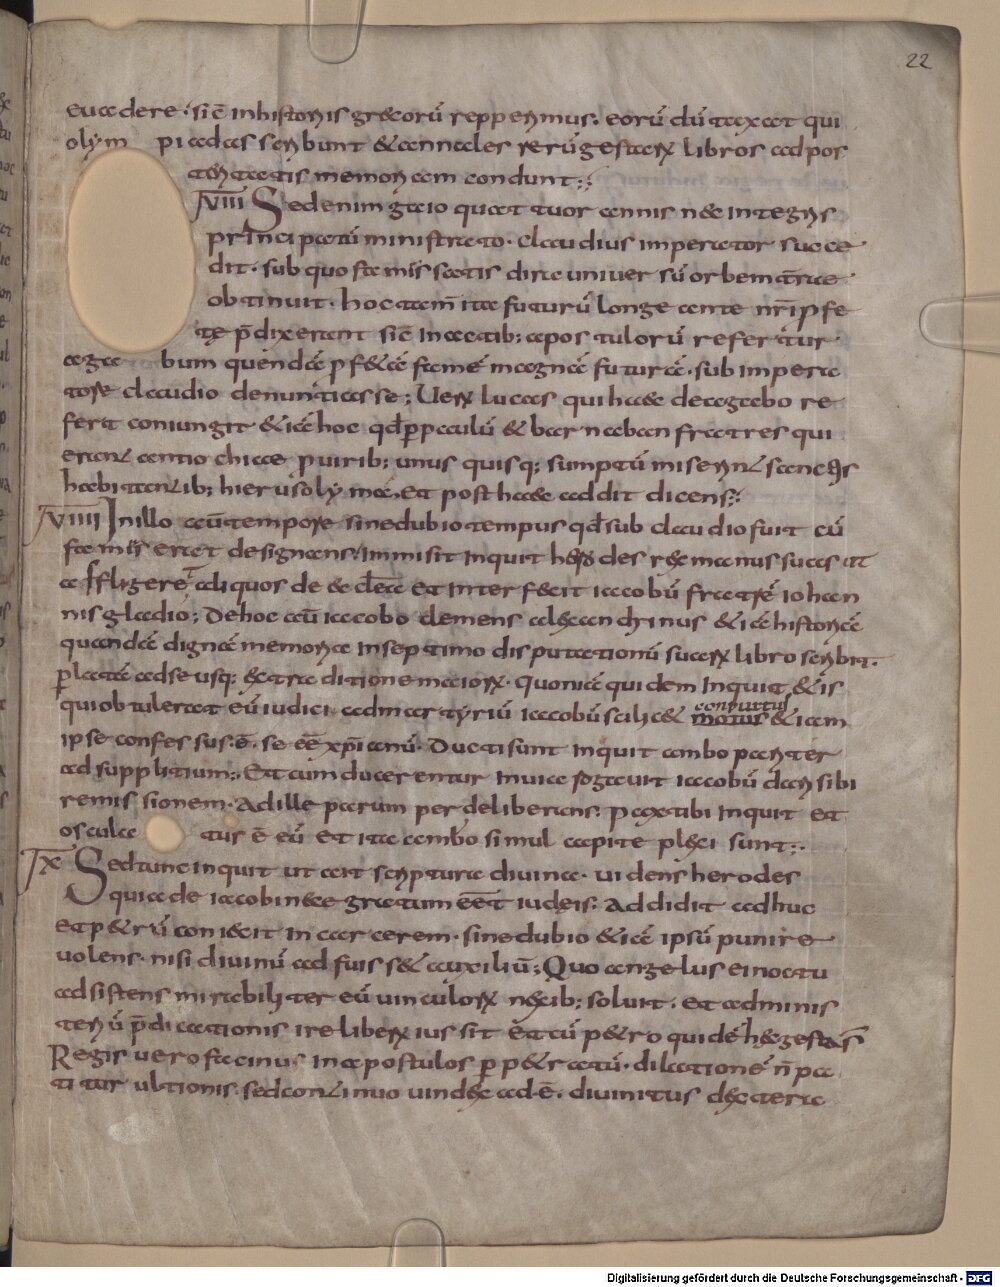 22
euadere. sic̄ in historiis grecorū repperimus. eorū dūtaxat qui
olym piadas scribunt & annales rerū gestarum libros ad pos
teritatis memoriam condunt;
VIII Sed enim gaio quattuor annis nec integris
principatū ministrato. claudius imperator succe
dit. sub quo famis satis dira uniuersū orbem terrae
obtinuit. hoc autem ita futurū longe ante nr̄i pfe
te p̄dixerant sic̄ in actib; apostulorū refertur
aga bum quendā pf&ā famē magnā futurā. sub impera
tore claudio denuntiasse; Uerum lucas qui haec de agabo re
fert coniungit &iā hoc qd̄ p paulū & barnaban fratres qui
erant antiochiae p uirib; unus quisq; sumptū miserint sanctis
habitantib; hierusolymae, et post haec addit dicens;
VIIII In illo aū tempore sine dubio tempus qd̄ sub claudio fuit cū
famis erat designans, inmisit inquit herodes rex manus suas ut
affligeret aliquos de aeclesia et interfecit iacobū fratrē iohan
nis gladio; De hoc aū iacobo clemens alexandrinus &iā historiā
quandā dignā memoria in septimo disputationū suarum libro scribit.
placatā ad se usq; ex traditione maiorum. Quoniā quidem inquit, & is
qui obtulerat eū iudici ad martyriū iacobū scilic& motus &iam
conpuntus
ipse confessus. ē. se eē xp̄ianū. Ducti sunt inquit ambo pariter
ad supplitium;. Et cum ducerentur in uia rogauit iacobū dari sibi
remissionem. Ad ille parum per deliberans: pax tibi inquit et
oscula tus ē eū et ita ambo simul capite plexi sunt;.
IX Sed tunc inquit ut ait scriptura diuina. uidens herodes
quia de iacobi nece gratum eēt iudeis: Addidit adhuc
et p&rū coniecit in carcerem. sine dubio &iā ipsū punire
uolens. nisi diuinū adfuiss& auxiliū; Quo angelus ei noctu
adsistens mirabiliter eū uinculorum nexib; soluit. et ad minis
teriū p̄dicationis ire liberum iussit. Et cū p&ro quidē haec gesta s̄
Regis uero facinus in apostulos p p&ratū. dilationē n̄ pa
titur ultionis. sed continuo uindex adē. diuinitus dextera
Digitalisierung gefördert durch die Deutsche Forschungsgemeinschaft - DFG